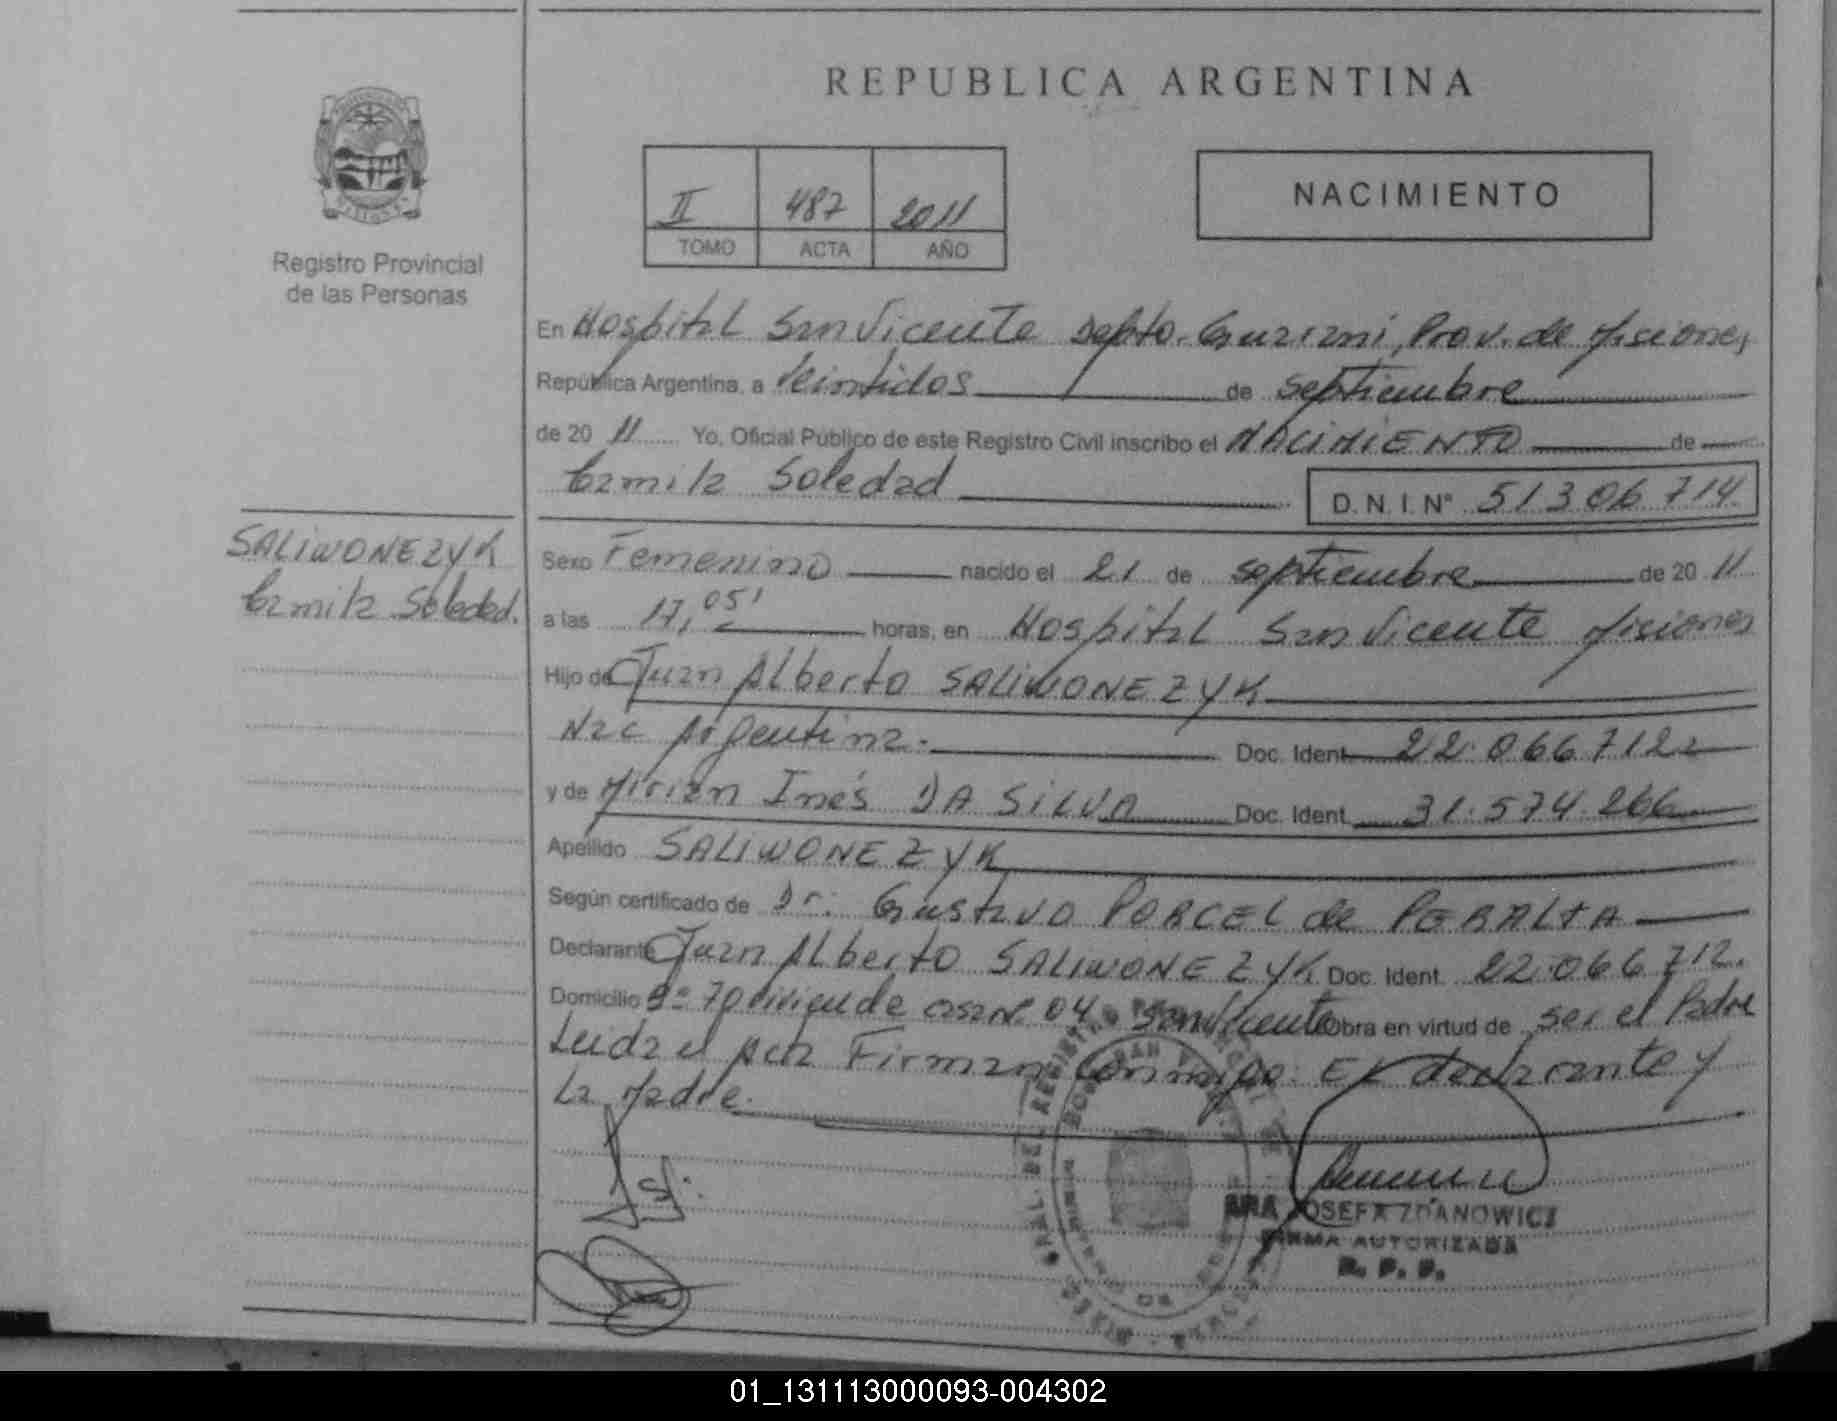 REPUBLICA ARGENTINA
Registro Provincial
de las Personas
II 487 2011
TOMO ACTA AÑO
NACIMIENTO
En Hospital San Vicente Depto. Guarani, Prov. de Misiones
República Argentina, a Veintidos de septiembre
de 20 11 Yo, Oficial Público de este Registro Civil inscribo el NACIMIENTO de
Camila Soledad
D. N. I. N° 51306714
SALIWONEZYK
Camila Soledad.
Sexo Femenino nacido el 21 de septiembre de 20 11
a las 17,05' horas, en Hospital San Vicente Misiones
Hijo de Juan Alberto SALIWONEZYK
Nac Argentina.- Doc. Ident. 22.066.712
y de Mirian Inés DA SILVA Doc. Ident. 31.574.266
Apellido SALIWONEZYK
Según certificado de Dr: Gustavo PORCEL de PERALTA
Declarante Juan Alberto SALIWONEZYK Doc. Ident. 22.066.712.
Domicilio 70 casa N° 04 San Vicente Obra en virtud de ser el Padre
Leida el Acta Firman Conmigo. El declarante y
La Madre.
JOSEFA ZDANOWICZ
FIRMA AUTORIZADA
R. P. P.
01_131113000093-004302